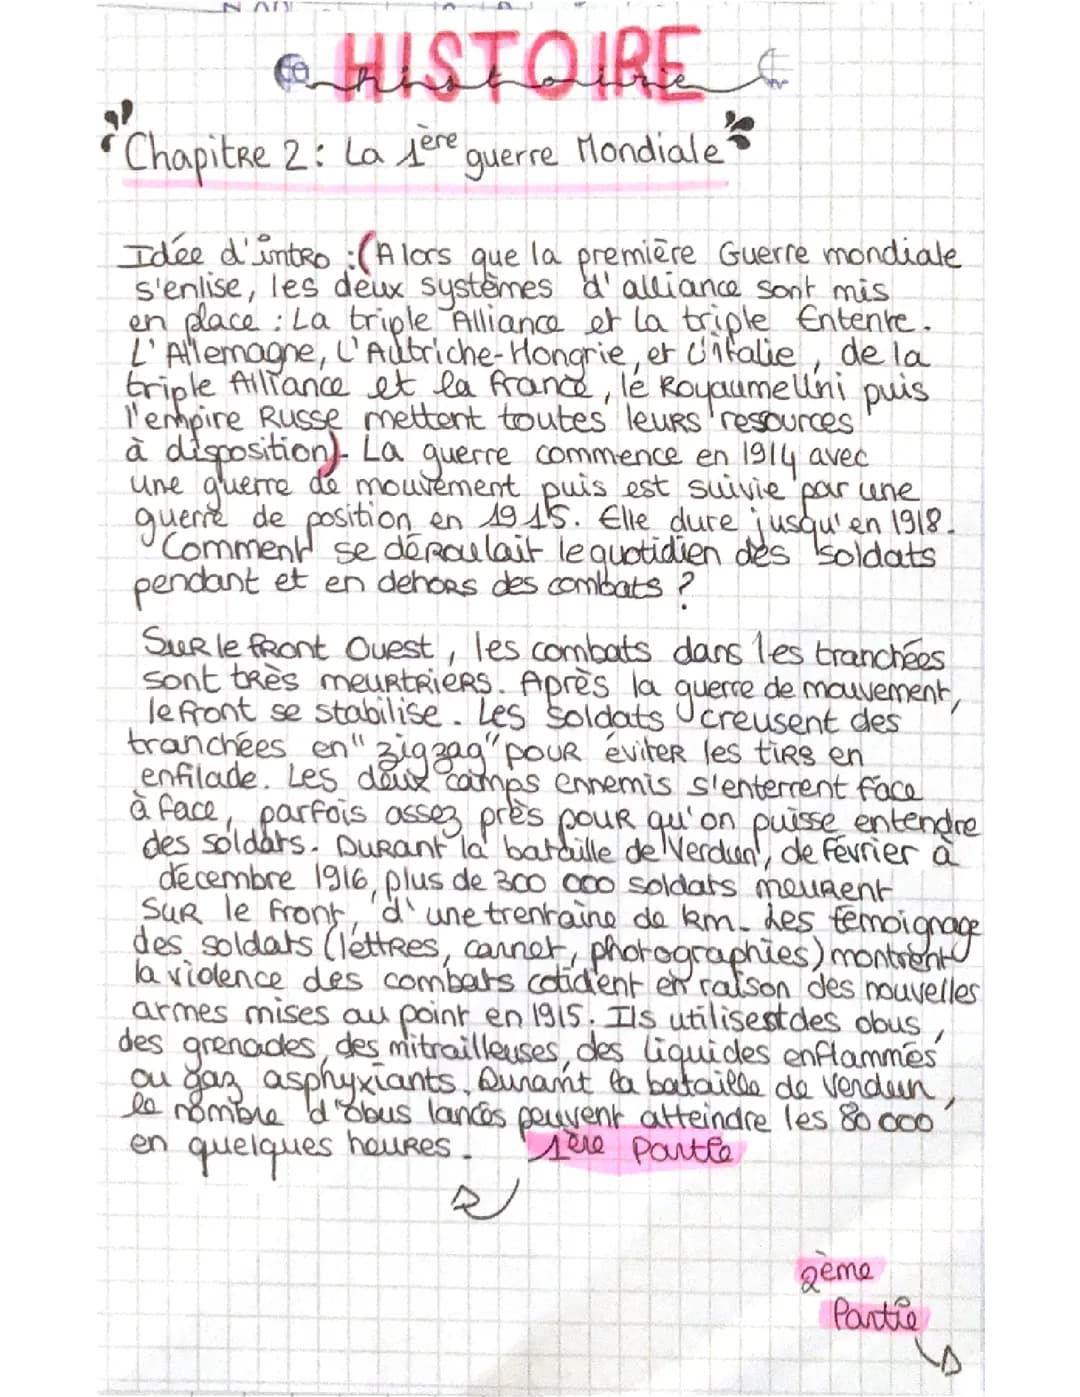 HISTOIRE
histoire
Chapitre 2: La 1ère guerre Mondiale
Idée d'intro : (Alors que la première Guerre mondiale
s'enlise, les deux systèmes d'alliance sont mis
en place : La triple Alliance et la triple Entente.
L'Allemagne, L'Autriche-Hongrie, et L'italie, de la
triple Alliance et la france, le Royaume Uni puis
l'empire Russe mettent toutes leurs ressources
à disposition). La guerre commence en 1914 avec
une guerre de mouvement puis est suivie par une
guerre de position en 1915. Elle dure jusqu'en 1918.
Comment se déroulait le quotidien des soldats
pendant et en dehors des combats ?
Sur le front Ouest, les combats dans les tranchées
sont très meurtriers. Après la guerre de mouvement,
le front se stabilise. Les soldats creusent des
tranchées en "zigzag" pour éviter les tirs en
enfilade. Les deux camps ennemis s'enterrent face
à face, parfois assez près pour qu'on puisse entendre
des soldats. Durant la bataille de Verdun, de février à
décembre 1916, plus de 300 000 soldats meurent
sur le front, d'une trentaine de km. Les témoignage
des soldats (lettres, carnet, photographies) montrent
la violence des combats cotident en raison des nouvelles
armes mises au point en 1915. Ils utilisest des obus,
des grenades, des mitrailleuses, des liquides enflammés
ou gaz asphyxiants. Durant la bataille de Verdun,
le nombre d'obus lancés peuvent atteindre les 80 000
en quelques heures. 1ère Partie
2ème
Partie